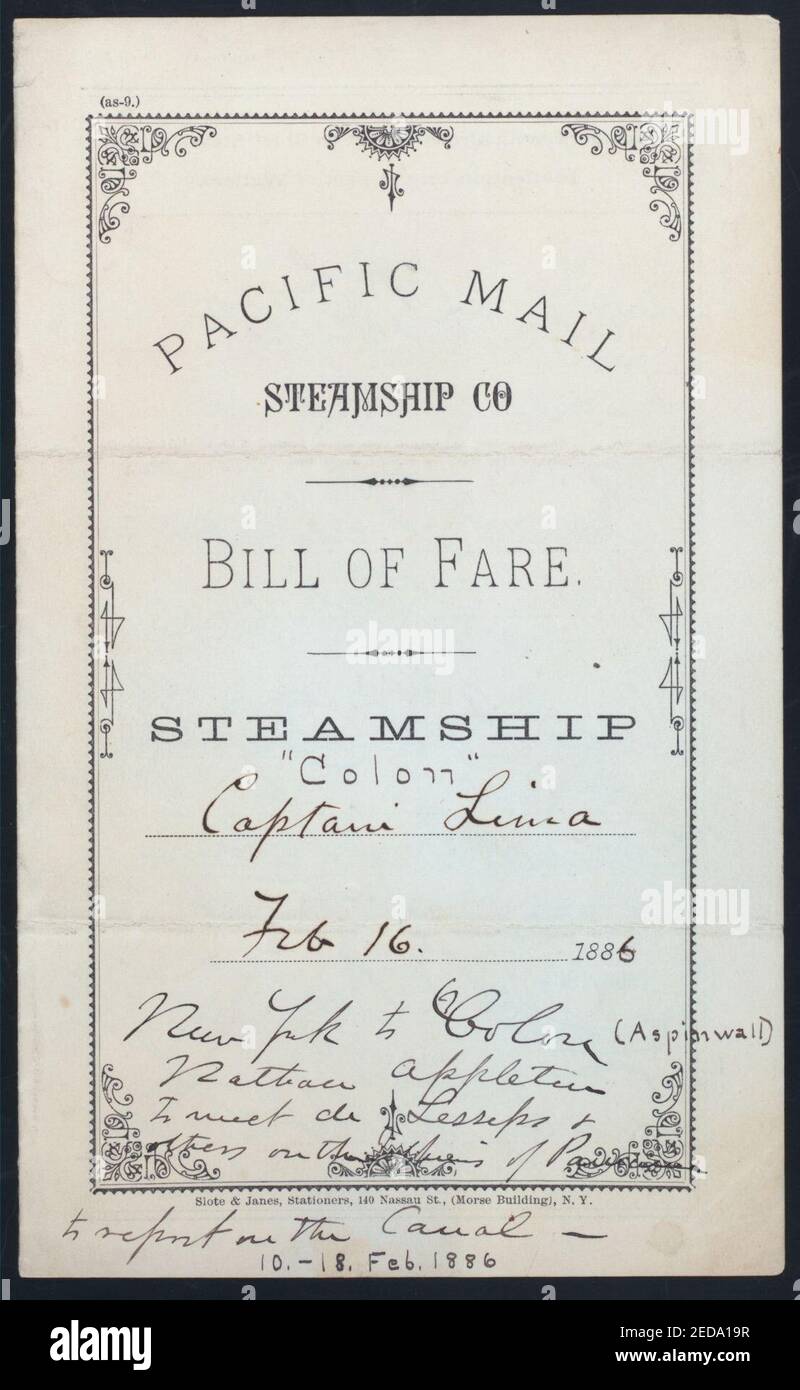 (as-9.)
PACIFIC MAIL
STEAMSHIP CO
BILL OF FARE.
STEAMSHIP
"Colon"
Captain Lima
Feb 16. 1886
New York to Colon (Aspinwall)
Nathan Appleton
to meet de Lesseps &
others on the Isthmus of Panama
Slote & Janes, Stationers, 140 Nassau St., (Morse Building), N. Y.
to report on the Canal —
10.-18. Feb. 1886
alamy
Image ID: 2EDA19R
www.alamy.com